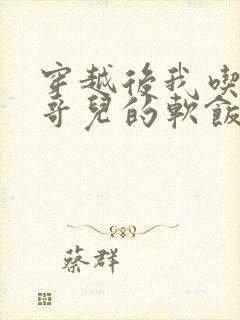 穿越後我喫
哥兒的軟飯
蔡群